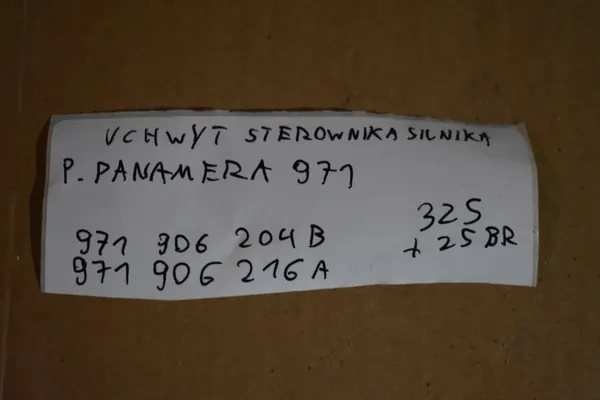 UCHWYT STEROWNIKA SILNIKA
P. PANAMERA 971
971 906 204 B
971 906 216 A
325
+ 25 BR